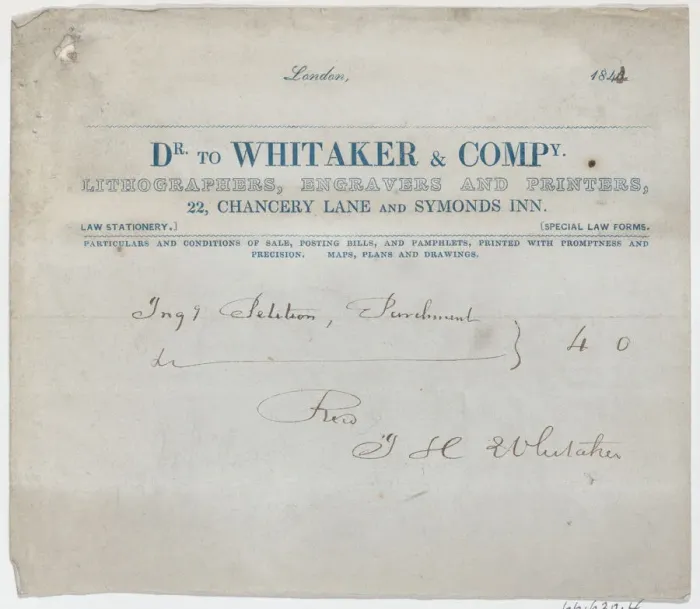 London, 184
DR. TO WHITAKER & COMPY.
LITHOGRAPHERS, ENGRAVERS AND PRINTERS,
22, CHANCERY LANE AND SYMONDS INN.
LAW STATIONERY.] [SPECIAL LAW FORMS.
PARTICULARS AND CONDITIONS OF SALE, POSTING BILLS, AND PAMPHLETS, PRINTED WITH PROMPTNESS AND
PRECISION. MAPS, PLANS AND DRAWINGS.
Ing Petition, Parchment
4 0
Recd
T H Whitaker